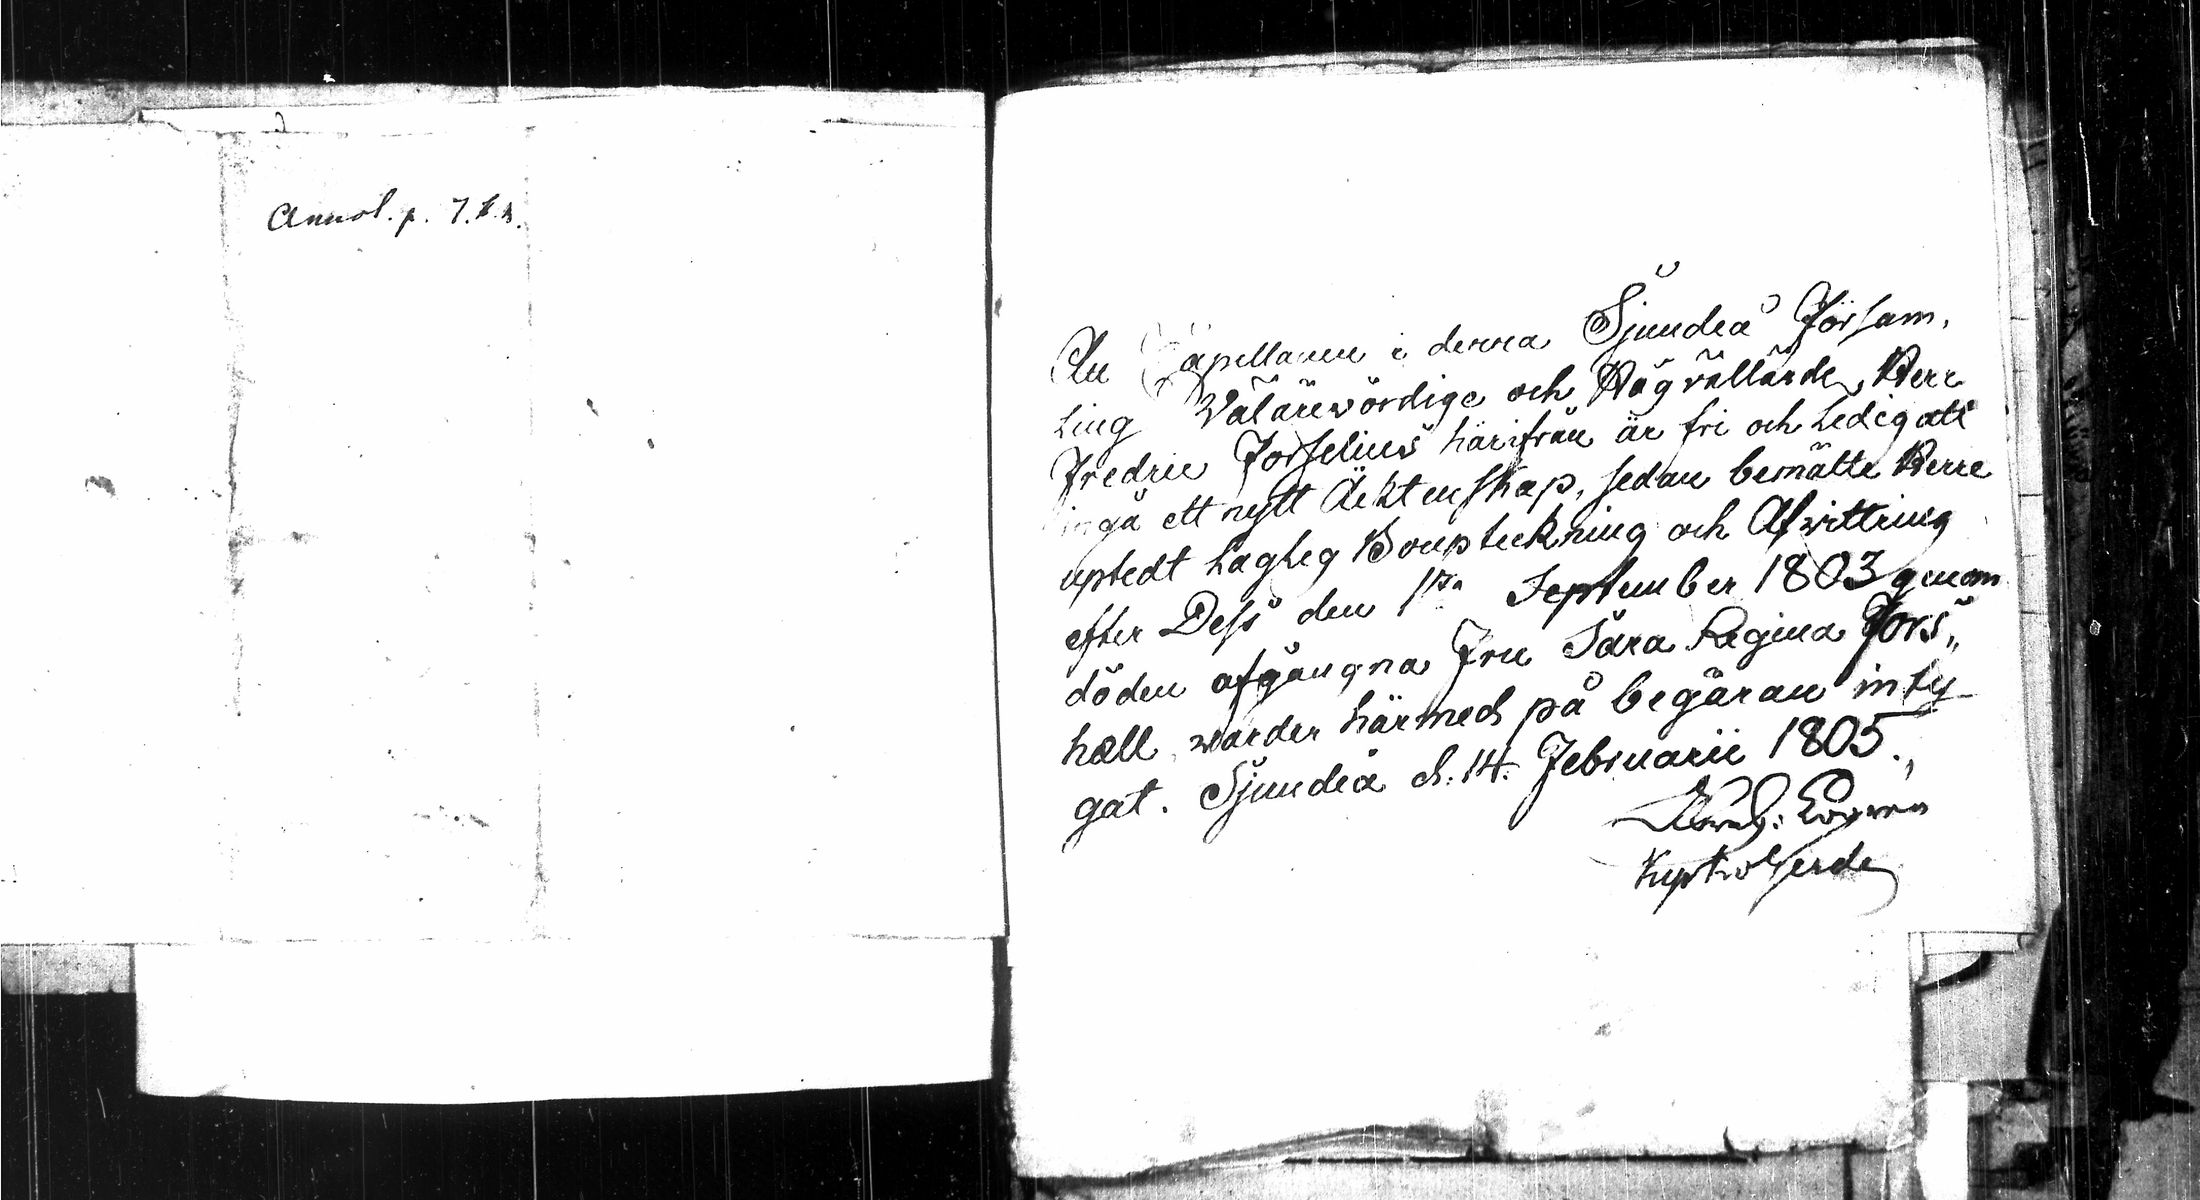 Annot. p. 7.
At Capellanen i denna Sjundeå Försam,
ling Välärevördige och Högvällärde Herr
Fredric Forselius härifrån är fri och Ledig att
ingå ett nytt Äcktenskap, sedan bemälte Herre
uptedt Laglig Boupteckning och Afvittring
efter Dess den September 1803 genom
döden afgångna Fru Sara Regina Fors,,
hæll warder härmed på begäran inty-
gat. Sjundeå d. 14. Februarii 1805.,
Kyrkoherde